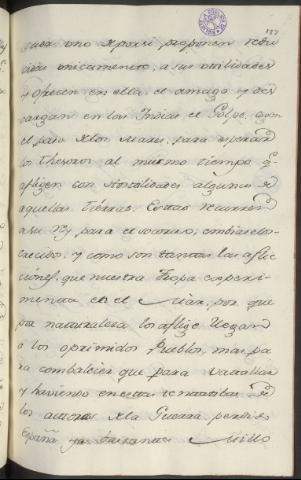 187
cada uno de por si proponen redu
cidas unicamente a sus utilidades
y ofrecen en ella el amago y des
cargan en las Indias el Golpe, con
el paso de los Mares, para esperar
los thesoros al mismo tiempo q.
afligen con hostilidades algunas de
aquellas tierras. Estas recurren
a su Rey para el socorro, embiaselos
crecidos, y como son tantas las aflic
ciones, que nuestra tropa experi
menta en el Mar, por que
por naturaleza los aflige llegan
a los oprimidos Pueblos, mas pa
ra combalecer que para vatallar
y haviendo en estas tentatibas de
los autores de la Guerra perdido
España ya